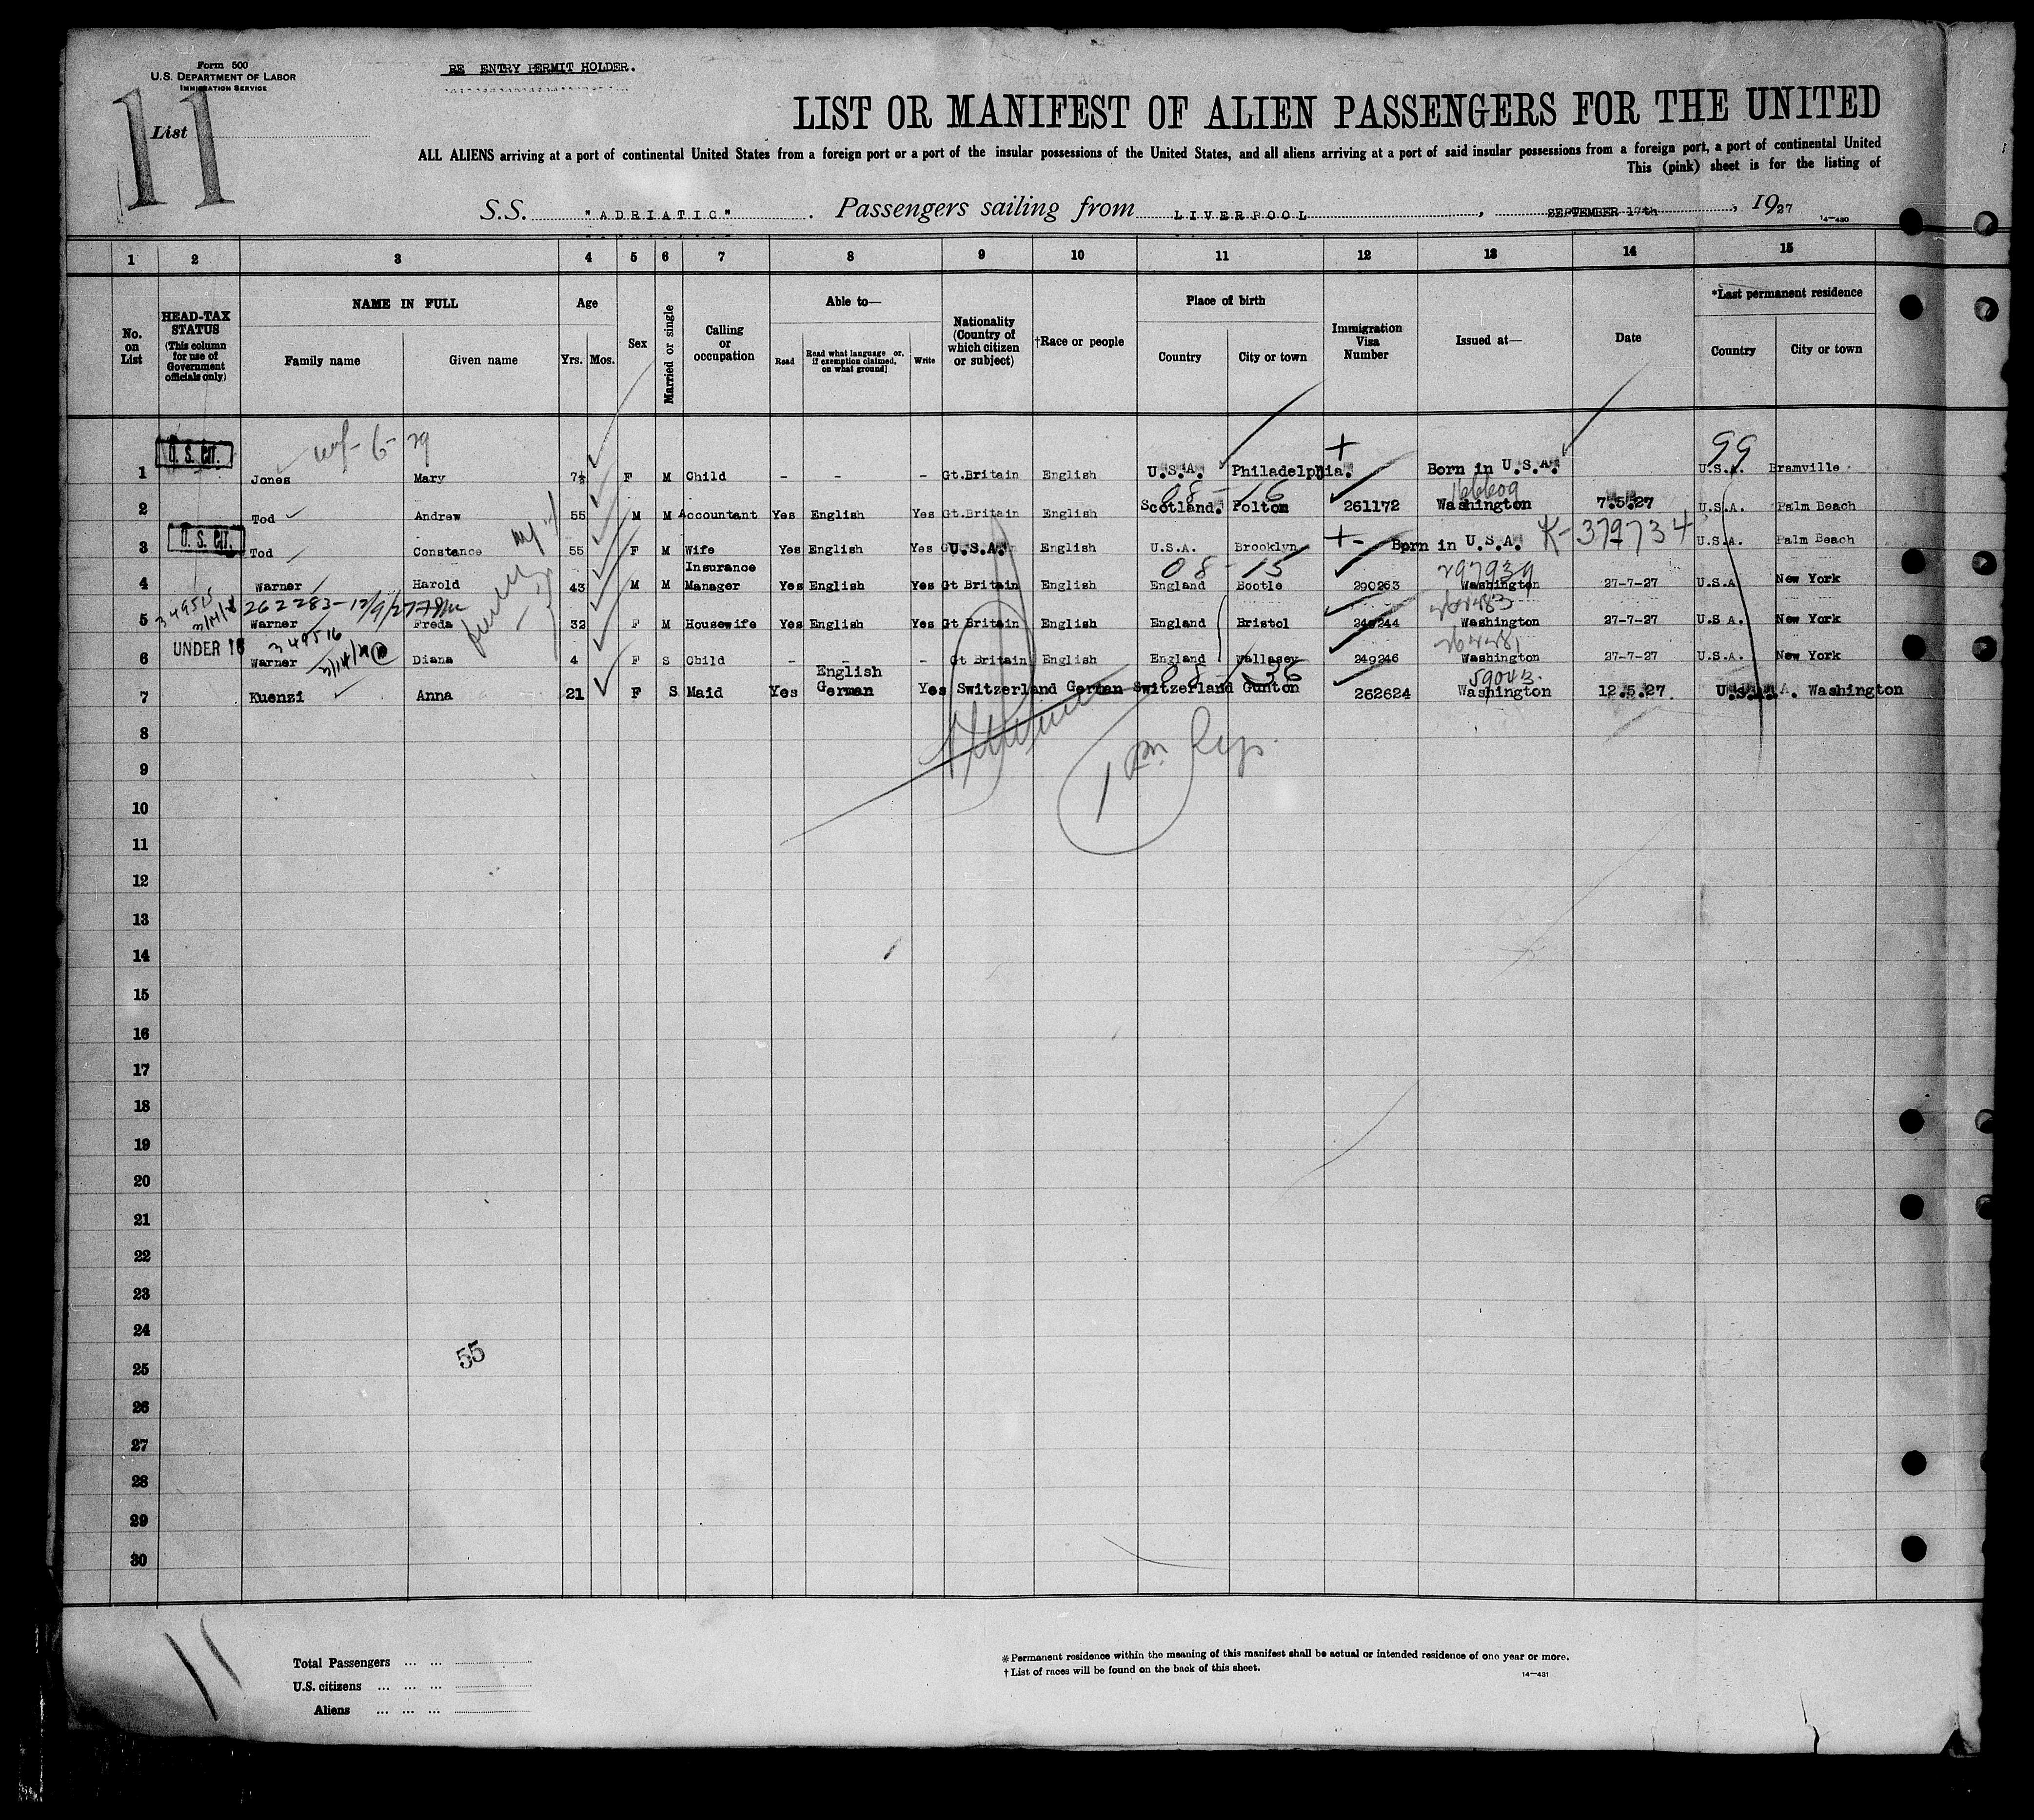 Form 500
U.S. DEPARTMENT OF LABOR
IMMIGRATION SERVICE
RE ENTRY PERMIT HOLDER.
11
List
LIST OR MANIFEST OF ALIEN PASSENGERS FOR THE UNITED
ALL ALIENS arriving at a port of continental United States from a foreign port or a port of the insular possessions of the United States, and all aliens arriving at a port of said insular possessions from a foreign port, a port of continental United
This (pink) sheet is for the listing of
S.S. "ADRIATIC" . Passengers sailing from LIVERPOOL , SEPTEMBER 17th , 1927
14-430
1 2 3 4 5 6 7 8 9 10 11 12 13 14 15
No. on List
HEAD-TAX STATUS (This column for use of Government officials only)
NAME IN FULL Family name Given name
Age Yrs. Mos.
Sex
Married or single
Calling or occupation
Able to— Read Read what language or, if exemption claimed, on what ground] Write
Nationality (Country of which citizen or subject)
†Race or people
Place of birth Country City or town
Immigration Visa Number
Issued at—
Date
*Last permanent residence Country City or town
6-29 99
1 U.S. CIT. Jones Mary 7½ F M Child - - - Gt.Britain English U.S.A. Philadelphia. + Born in U.S.A. U.S.A. Bramville
08-16 166609
2 Tod Andrew 55 M M Accountant Yes English Yes Gt.Britain English Scotland. Polton 261172 Washington 7.5.27 U.S.A. Palm Beach
3 U.S. CIT. Tod Constance 55 F M Wife Yes English Yes U.S.A. English U.S.A. Brooklyn + - Born in U.S.A. K-379734 U.S.A. Palm Beach
08-15 297939
4 Warner Harold 43 M M Insurance Manager Yes English Yes Gt Britain English England Bootle 290263 Washington 27-7-27 U.S.A New York
349515 262283-12/9/27
5 Warner Freda 32 F M Housewife Yes English Yes Gt Britain English England Bristol 249244 Washington 27-7-27 U.S A. New York
349516
6 UNDER 16 Warner Diana 4 F S Child - - - Gt Britain English England Wallasey 249246 Washington 27-7-27 U.S.A. New York
08-36 59043
7 Kuenzi Anna 21 F S Maid Yes English German Yes Switzerland German Switzerland Gunton 262624 Washington 12.5.27 U.S.A. Washington
8
9
10
11
12
13
14
15
16
17
18
19
20
21
22
23
24
55
25
26
27
28
29
30
11
Total Passengers ... ...
U.S. citizens ... ... ...
Aliens ... ... ...
*Permanent residence within the meaning of this manifest shall be actual or intended residence of one year or more.
†List of races will be found on the back of this sheet.
14-431